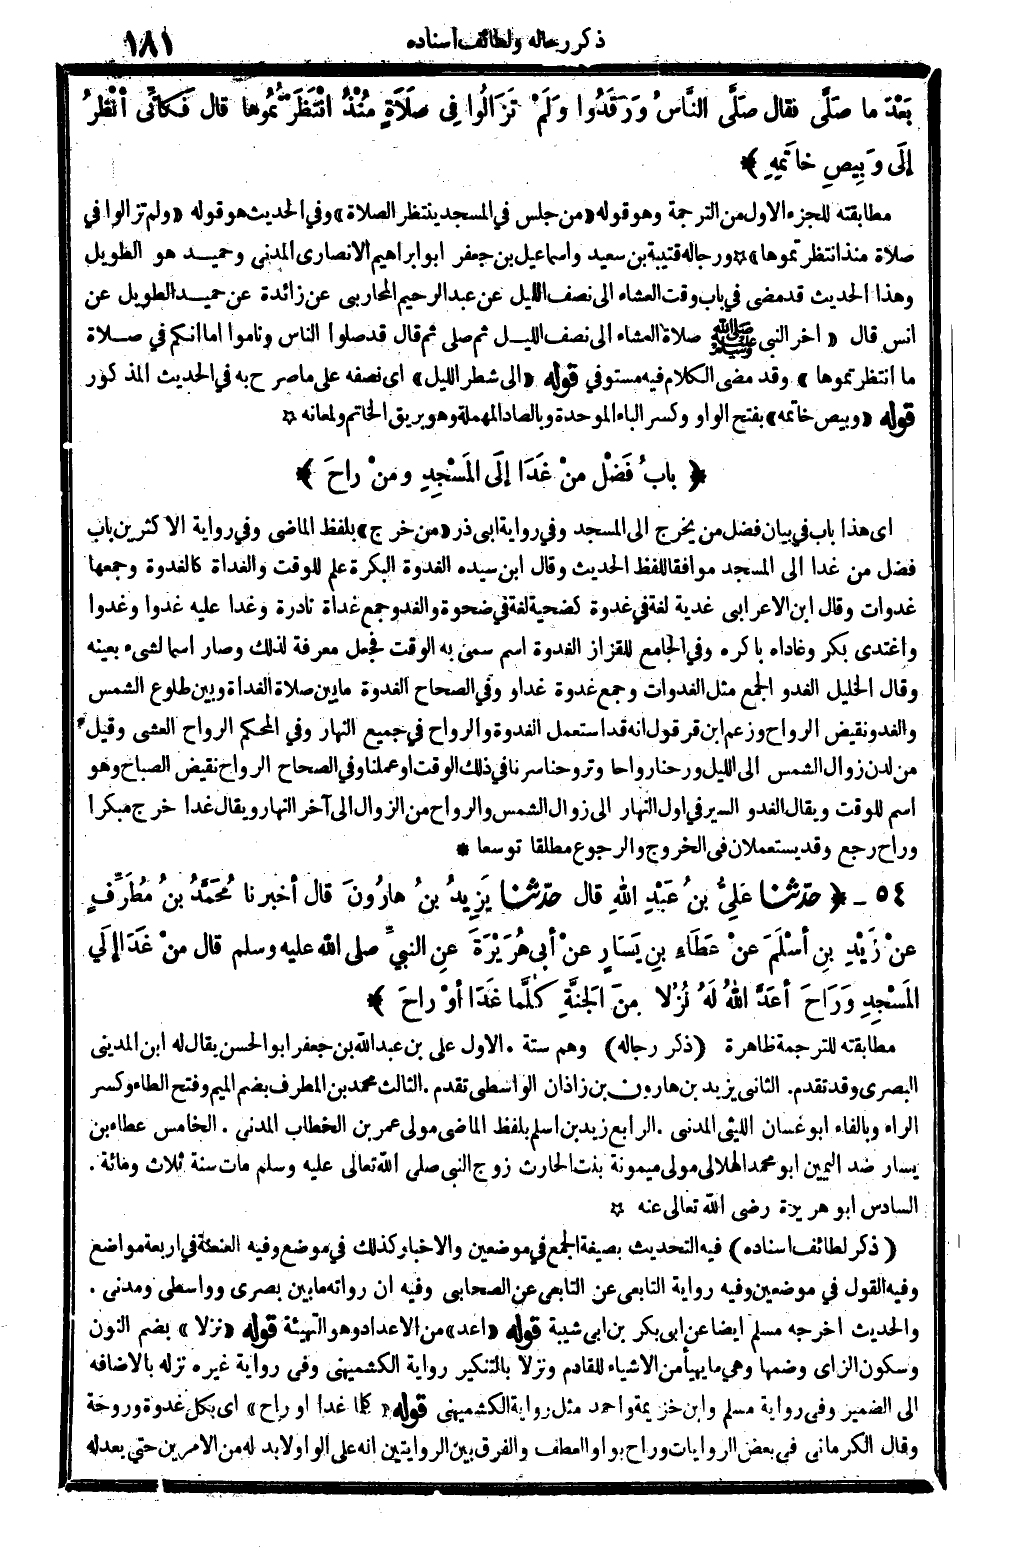 ذكر رجاله ولطائف اسناده ١٨١
بَعْدَ ما صَلَّى فقال صَلَّى النَّاسُ وَرَقَدُوا وَلَمْ تَزَالُوا فِى صَلَاةٍ مُنْذُ انْتَظَرْتُمُوها قال فَكأَنِّى أنْظُرُ
إلَى وَبِيصِ خاتَمِهِ ﴾
مطابقته للجزء الاول من الترجمة وهو قوله «من جلس في المسجد ينتظر الصلاة» وفي الحديث هو قوله «ولم تزالوا في
صلاة منذ انتظرتموها» ☆ ورجاله قتيبة بن سعيد واسماعيل بن جعفر ابو ابراهيم الانصارى المدنى وحميد هو الطويل
وهذا الحديث قد مضى في باب وقت العشاء الى نصف الليل عن عبد الرحيم المحاربى عن زائدة عن حميد الطويل عن
انس قال «اخر النبى صلى الله عليه وسلم صلاة العشاء الى نصف الليل ثم صلى ثم قال قد صلوا الناس وناموا اما انكم في صلاة
ما انتظرتموها» وقد مضى الكلام فيه مستوفي قوله «الى شطر الليل» اى نصفه على ما صرح به في الحديث المذكور
قوله «وبيص خاتمه» بفتح الواو وكسر الباء الموحدة وبالصاد المهملة وهو بريق الخاتم ولمعانه ☆
﴿ بابُ فَضْلِ منْ غَدَا إلَى المَسْجِدِ ومنْ راحَ ﴾
اى هذا باب في بيان فضل من يخرج الى المسجد وفي رواية ابى ذر «من خرج» بلفظ الماضى وفي رواية الاكثرين باب
فضل من غدا الى المسجد موافقا للفظ الحديث وقال ابن سيده الغدوة البكرة علم للوقت والغداة كالغدوة وجمعها
غدوات وقال ابن الاعرابى غدية لغة في غدوة كضحية لغة في ضحوة والغدو جمع غداة نادرة وغدا عليه غدوا وغدوا
واغتدى بكر وغاداه باكره وفي الجامع للقزاز الغدوة اسم سمى به الوقت فجعل معرفة لذلك وصار اسما لشىء بعينه
وقال الخليل الغدو الجمع مثل الغدوات وجمع غدوة غدا وفي الصحاح الغدوة ما بين صلاة الغداة وبين طلوع الشمس
والغدو نقيض الرواح وزعم ابن قرقول انه قد استعمل الغدوة والرواح في جميع النهار وفي المحكم الرواح العشى وقيل
من لدن زوال الشمس الى الليل ورحنا رواحا وتروحنا سرنا في ذلك الوقت او عملنا وفي الصحاح الرواح نقيض الصباح وهو
اسم للوقت ويقال الغدو السير في اول النهار الى زوال الشمس والرواح من الزوال الى آخر النهار ويقال غدا خرج مبكرا
وراح رجع وقد يستعملان فى الخروج والرجوع مطلقا توسعا *
٥٤ - ﴿ حدّثنا عَلِيُّ بنُ عَبْدِ اللهِ قال حدّثنا يَزِيدُ بنُ هارُونَ قال أخبرنا مُحَمَّدُ بنُ مُطَرِّفٍ
عنْ زَيْدِ بنِ أسْلَمَ عنْ عَطَاءِ بنِ يَسَارٍ عنْ أبى هُرَيْرَةَ عنِ النبيِّ صلى الله عليه وسلم قال منْ غَدَا إلَي
المَسْجِدِ وَرَاحَ أعَدَّ اللهُ لَهُ نُزُلا مِنَ الجَنَّةِ كُلَّمَا غَدَا أوْ راحَ ﴾
مطابقته للترجمة ظاهرة (ذكر رجاله) وهم ستة . الاول على بن عبد الله بن جعفر ابو الحسن يقال له ابن المدينى
البصرى وقد تقدم . الثانى يزيد بن هارون بن زاذان الواسطى تقدم . الثالث محمد بن المطرف بضم الميم وفتح الطاء وكسر
الراء وبالفاء ابو غسان الليثى المدنى . الرابع زيد بن اسلم بلفظ الماضى مولى عمر بن الخطاب المدنى . الخامس عطاء بن
يسار ضد اليمين ابو محمد الهلالى مولى ميمونة بنت الحارث زوج النبى صلى الله تعالى عليه وسلم مات سنة ثلاث ومائة .
السادس ابو هريرة رضى الله تعالى عنه ☆
(ذكر لطائف اسناده) فيه التحديث بصيغة الجمع في موضعين والاخبار كذلك في موضع وفيه العنعنة في اربعة مواضع
وفيه القول في موضعين وفيه رواية التابعى عن التابعى عن الصحابى وفيه ان رواته ما بين بصرى وواسطى ومدنى .
والحديث اخرجه مسلم ايضا عن ابى بكر بن ابى شيبة قوله «اعد» من الاعداد وهو التهيئة قوله «نزلا» بضم النون
وسكون الزاى وضمها وهي ما يهيأ من الاشياء للقادم ونزلا بالتنكير رواية الكشميهنى وفى رواية غيره نزله بالاضافه
الى الضمير وفى رواية مسلم وابن خزيمة واحمد مثل رواية الكشميهنى قوله «كلما غدا او راح» اى بكل غدوة وروحة
وقال الكرمانى فى بعض الروايات وراح بواو العطف والفرق بين الروايتين انه على الواو لابد له من الامرين حتى يعد له